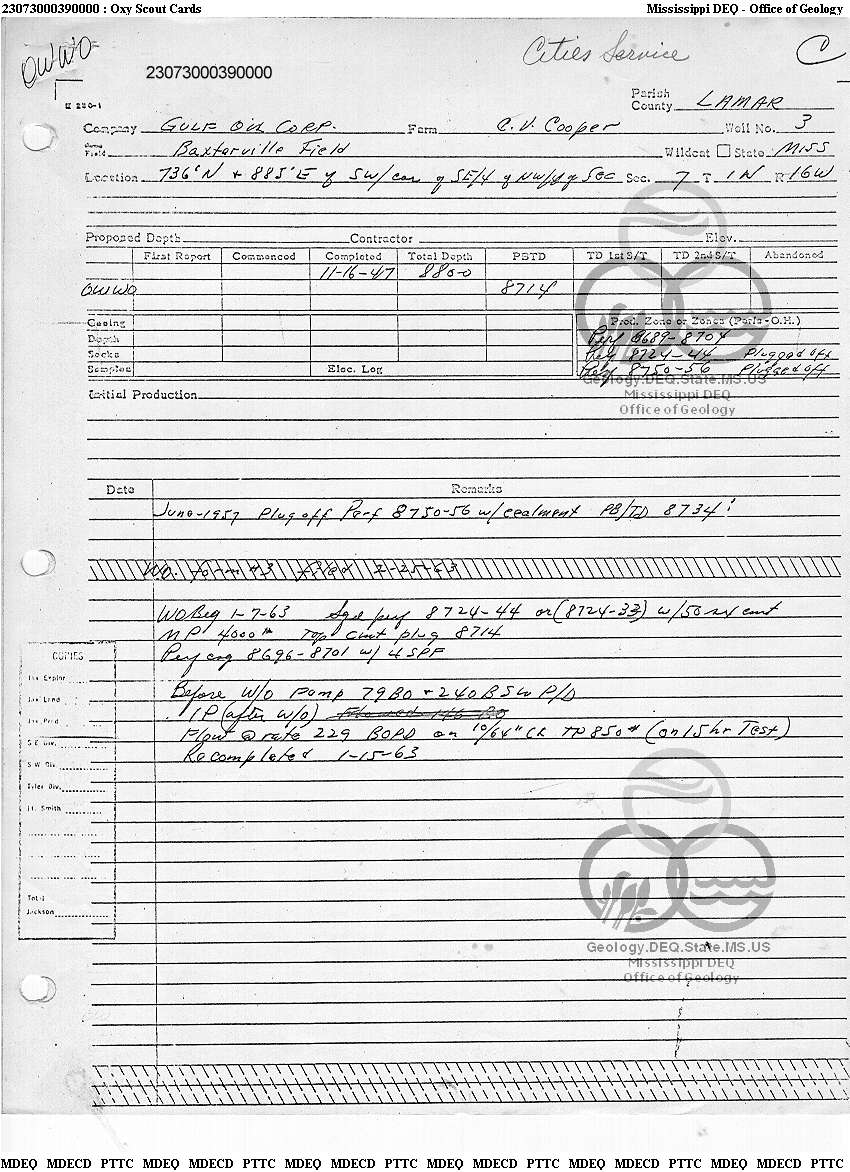 23073000390000 : Oxy Scout Cards Mississippi DEQ - Office of Geology
OWWO Cities Service C
23073000390000
E 280-1
Parish
County LAMAR
Company GULF OIL CORP. Farm C.V. Cooper Well No. 3
Field Baxterville Field Wildcat State MISS
Location 736'N + 885'E of SW/cor of SE/4 of NW/4 of Sec Sec. 7 T 1N R 16W
Proposed Depth Contractor Elev.
First Report Commenced Completed Total Depth PBTD TD 1st S/T TD 2nd S/T Abandoned
11-16-47 8800
OWWO 8714
Casing Prod. Zone or Zones (Perfs - O.H.)
Depth Perf 8689-8704
Sacks Perf 8724-44 Plugged off
Samples Elec. Log Perf 8750-56 Plugged off
Geology.DEQ.State.MS.US
Initial Production Mississippi DEQ
Office of Geology
Date Remarks
June-1957 Plug off Perf 8750-56 w/cealment PB/TD 8734'
W.O. form #3 filed 2-25-63
WO Beg 1-7-63 Sqd perf 8724-44 or (8724-33) w/50 sx cmt
MP 4000# Top Cmt plug 8714
Perf csg 8696-8701 w/ 4 SPF
Before W/O Pump 79 BO + 240 B SW P/D
IP (after W/O) Flowed 146 BO
Flow @ rate 229 BOPD on 10/64" Ck TP 850# (on 15 hr Test)
Recompleted 1-15-63
COPIES
Jax Explor
Jax Land
Jax Prod
S E Div.
S W Div.
Tyler Div.
Ft. Smith
Total
Jackson
Geology.DEQ.State.MS.US
Mississippi DEQ
Office of Geology
MDEQ MDECD PTTC MDEQ MDECD PTTC MDEQ MDECD PTTC MDEQ MDECD PTTC MDEQ MDECD PTTC MDEQ MDECD PTTC